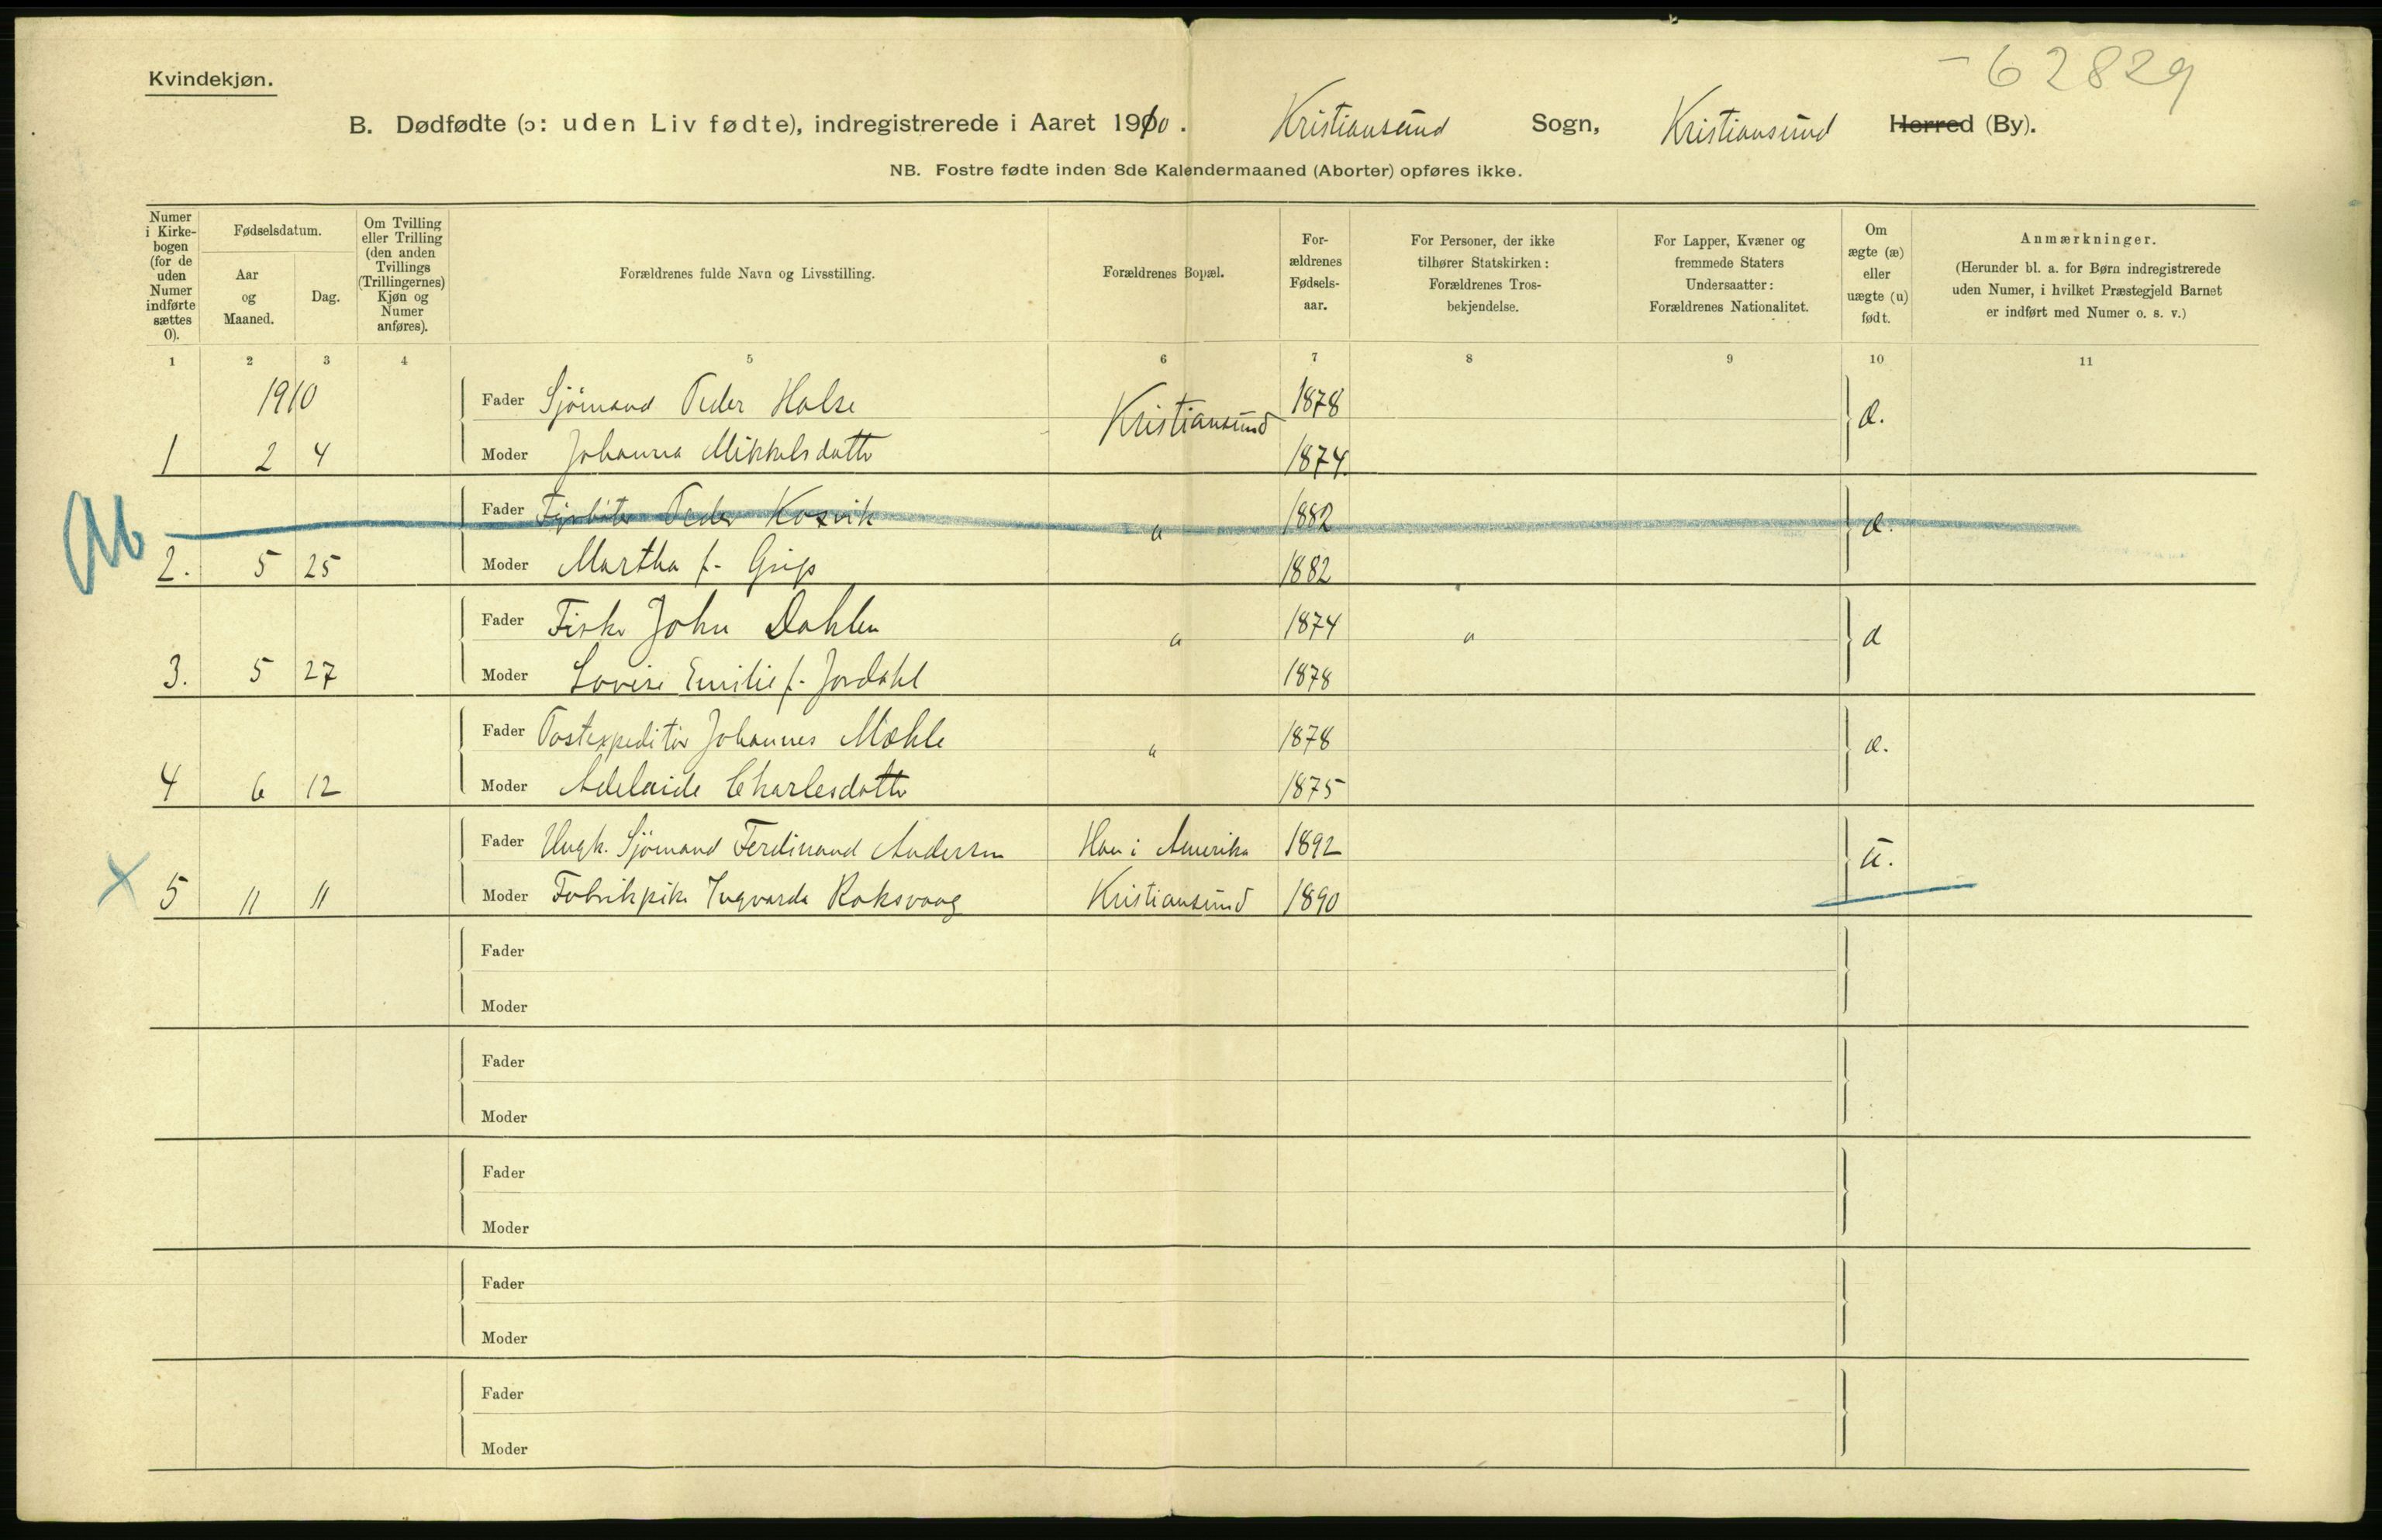 -62829
Kvindekjøn.
B. Dødfødte (ɔ: uden Liv fødte), indregistrerede i Aaret 1910. Kristiansund Sogn, Kristiansund Herred (By).
NB. Fostre fødte inden 8de Kalendermaaned (Aborter) opføres ikke.
Numer i Kirkebogen (for de uden Numer indførte sættes 0).
Fødselsdatum.
Aar og Maaned.
Dag.
Om Tvilling eller Trilling (den anden Tvillings (Trillingernes) Kjøn og Numer anføres).
Forældrenes fulde Navn og Livsstilling.
Forældrenes Bopæl.
For-ældrenes Fødsels-aar.
For Personer, der ikke tilhører Statskirken: Forældrenes Tros-bekjendelse.
For Lapper, Kvæner og fremmede Staters Undersaatter: Forældrenes Nationalitet.
Om ægte (æ) eller uægte (u) født.
Anmærkninger.
(Herunder bl. a. for Børn indregistrerede uden Numer, i hvilket Præstegjeld Barnet er indført med Numer o. s. v.)
1 2 3 4 5 6 7 8 9 10 11
1910 Fader Sjömand Peder Halse Kristiansund 1878 æ.
1 2 4 Moder Johanna Mikkelsdatter 1874.
Ab Fader Fyrbøter Peder Kosvik " 1882 æ.
2. 5 25 Moder Martha f. Grip 1882
Fader Fisker John Dahlen " 1874 " æ
3. 5 27 Moder Lovise Emilie f. Jordahl 1878
Fader Postexpeditör Johannes Mæhle " 1878 æ.
4 6 12 Moder Adelaide Charlesdatter 1875
Fader Ungk. Sjömand Ferdinand Andersen Han i Amerika 1892 u.
X 5 11 11 Moder Fabrikpike Ingvarda Roksvaag Kristiansund 1890
Fader
Moder
Fader
Moder
Fader
Moder
Fader
Moder
Fader
Moder